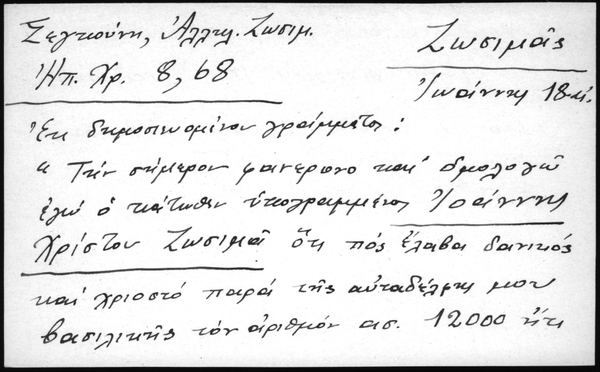 Σεγκούνη, Ἀλληλ. Ζωσιμ.
Ζωσιμᾶς
Ἠπ. Χρ. 8, 68
Ἰωάννης 18 αἰ.
Ἐκ δημοσιευομένου γράμματος:
" Τὴν σήμερον φανερώνο καὶ ὁμολογῶ
ἐγὼ ὁ κάτωθεν ὑπογραμμένος Ἰοάννης
Χρίστου Ζωσιμᾶ ὅτι πὸς ἔλαβα δανικός
καὶ χριοστό παρὰ τῆς αὐταδέλφης μου
βασιλικῆς τὸν ἀριθμόν ασ. 12000 ἤτι